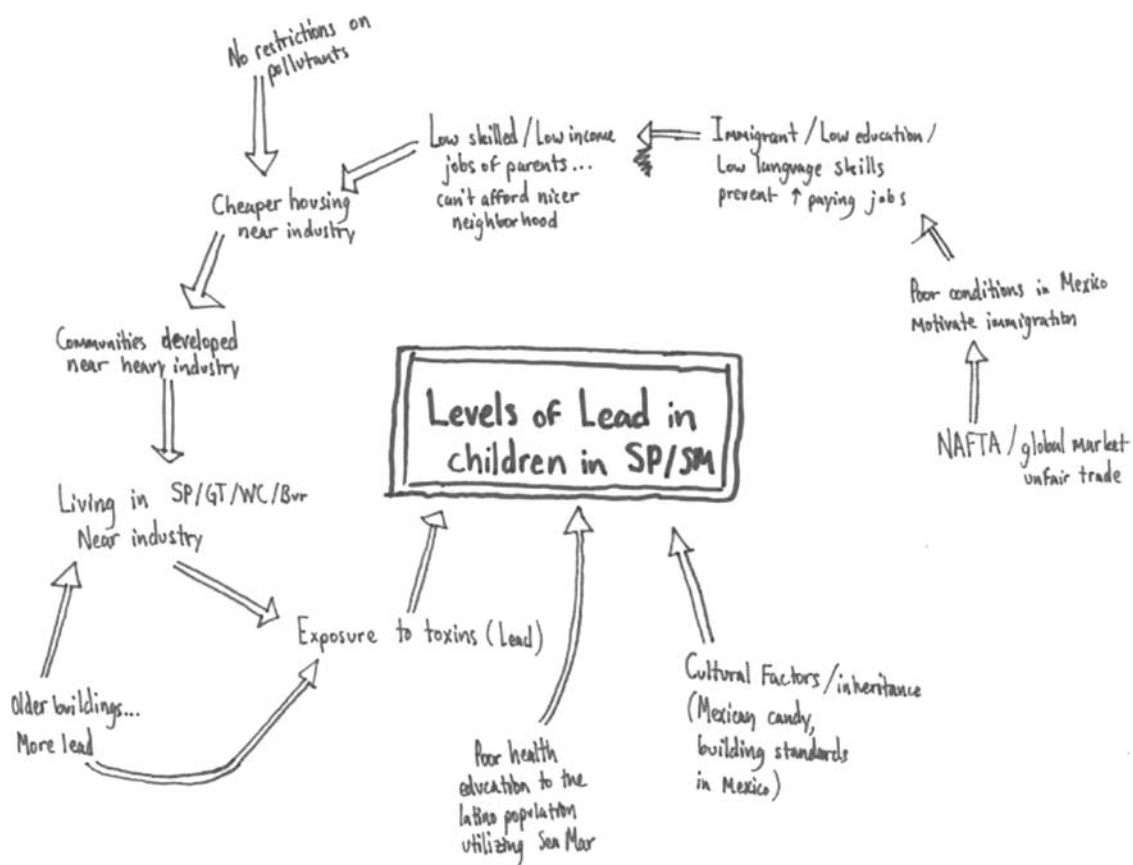 No restrictions on
pollutants
Low skilled / Low income
jobs of parents...
can't afford nicer
neighborhood
Immigrant / Low education /
Low language skills
prevent ↑ paying jobs
Cheaper housing
near industry
Poor conditions in Mexico
Motivate immigration
Communities developed
near heavy industry
Levels of Lead in
children in SP/SM
NAFTA / global market
unfair trade
Living in SP/GT/WC/Bur
Near industry
Exposure to toxins (Lead)
Older buildings...
More lead
Cultural Factors / inheritance
(Mexican candy,
building standards
in Mexico)
Poor health
education to the
latino population
utilizing Sea Mar